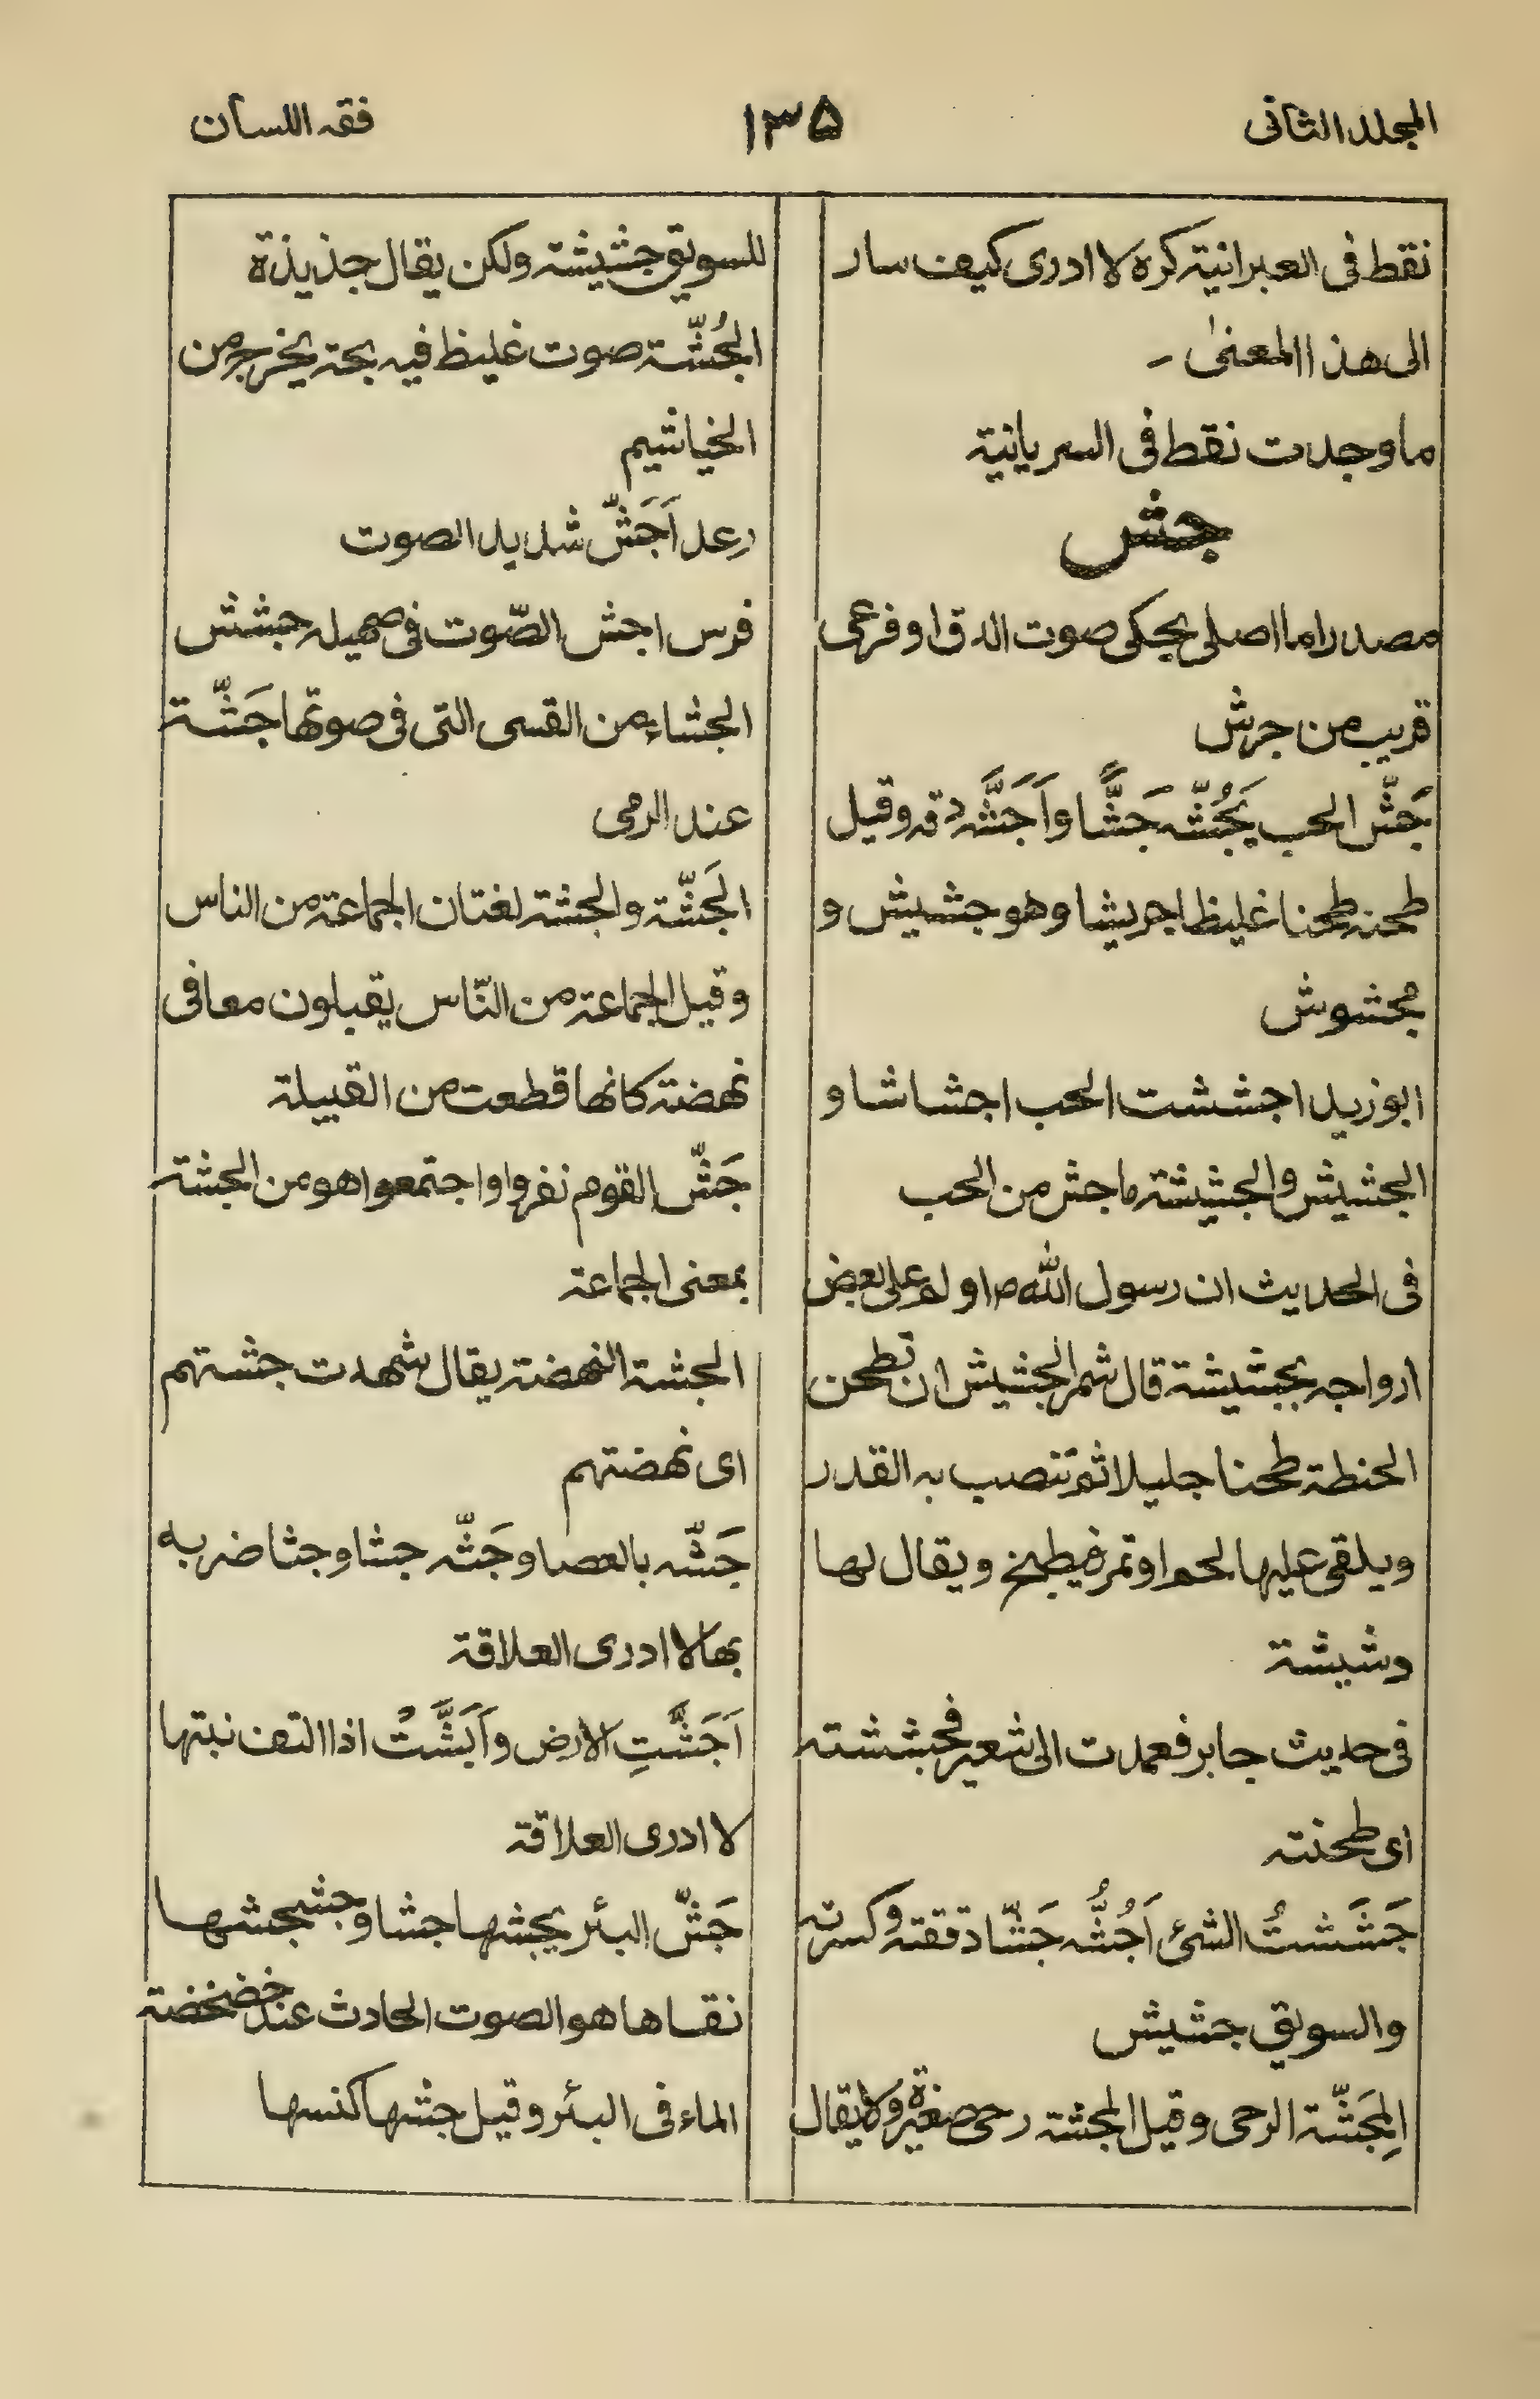 المجلد الثانى
١٣٥
فقه اللسان
نقط فى العبرانية كره لا ادرى كيف سار
الى هذا المعنىٰ -
ما وجدت نقط فى السريانية
جش
مصدر اما اصلى يحكى صوت الدق او فرعى
قريب من جرش
جَشّ الحب يَجُشّه جَشًّا واَجَشَّه دقه وقيل
طحنه طحنا غليظا جريشا وهو جشيش و
مجشوش
ابوزيد اجششت الحب اجشاشا و
الجشيش والجشيشة ما جش من الحب
فى الحديث ان رسول الله ص اولم على بعض
ازواجه بجشيشة قال شمر الجشيش ان تطحن
الحنطة طحنا جليلا ثم تنصب به القدر
ويلقى عليها لحم او تمر فيطبخ ويقال لها
دشيشة
فى حديث جابر فعمدت الى شعير فجششته
اى طحنته
جَشَشتُ الشئ اَجُشُّه جَشّا دققته وكسرته
والسويق جشيش
المِجَشّة الرحى وقيل المجشة رحى صغيرة ولا يقال
للسويق جشيشة ولكن يقال جذيذة
الجُشّة صوت غليظ فيه بحة يخرج من
الخياشيم
رعد اَجَشّ شديد الصوت
فرس اجش الصّوت فى صهيله جشش
الجشاء من القسى التى فى صوتها جَشّة
عند الرمى
الجَشّة والجشة لغتان الجماعة من الناس
وقيل الجماعة من النّاس يقبلون معا فى
نهضة كانها قطعت من القبيلة
جَشّ القوم نفروا واجتمعوا هو من الجشة
بمعنى الجماعة
الجشة النهضة يقال شهدت جشتهم
اى نهضتهم
جَشّه بالعصا وجَثّه جشا وجثا ضربه
بها لا ادرى العلاقة
اَجَشَّتِ الارض واَبَشَّتْ اذا التف نبتها
لا ادرى العلاقة
جَشّ البئر يجشها جشا وجشجشها
نقاها هو الصوت الحادث عند خضخضة
الماء فى البئر وقيل جشها كنسها